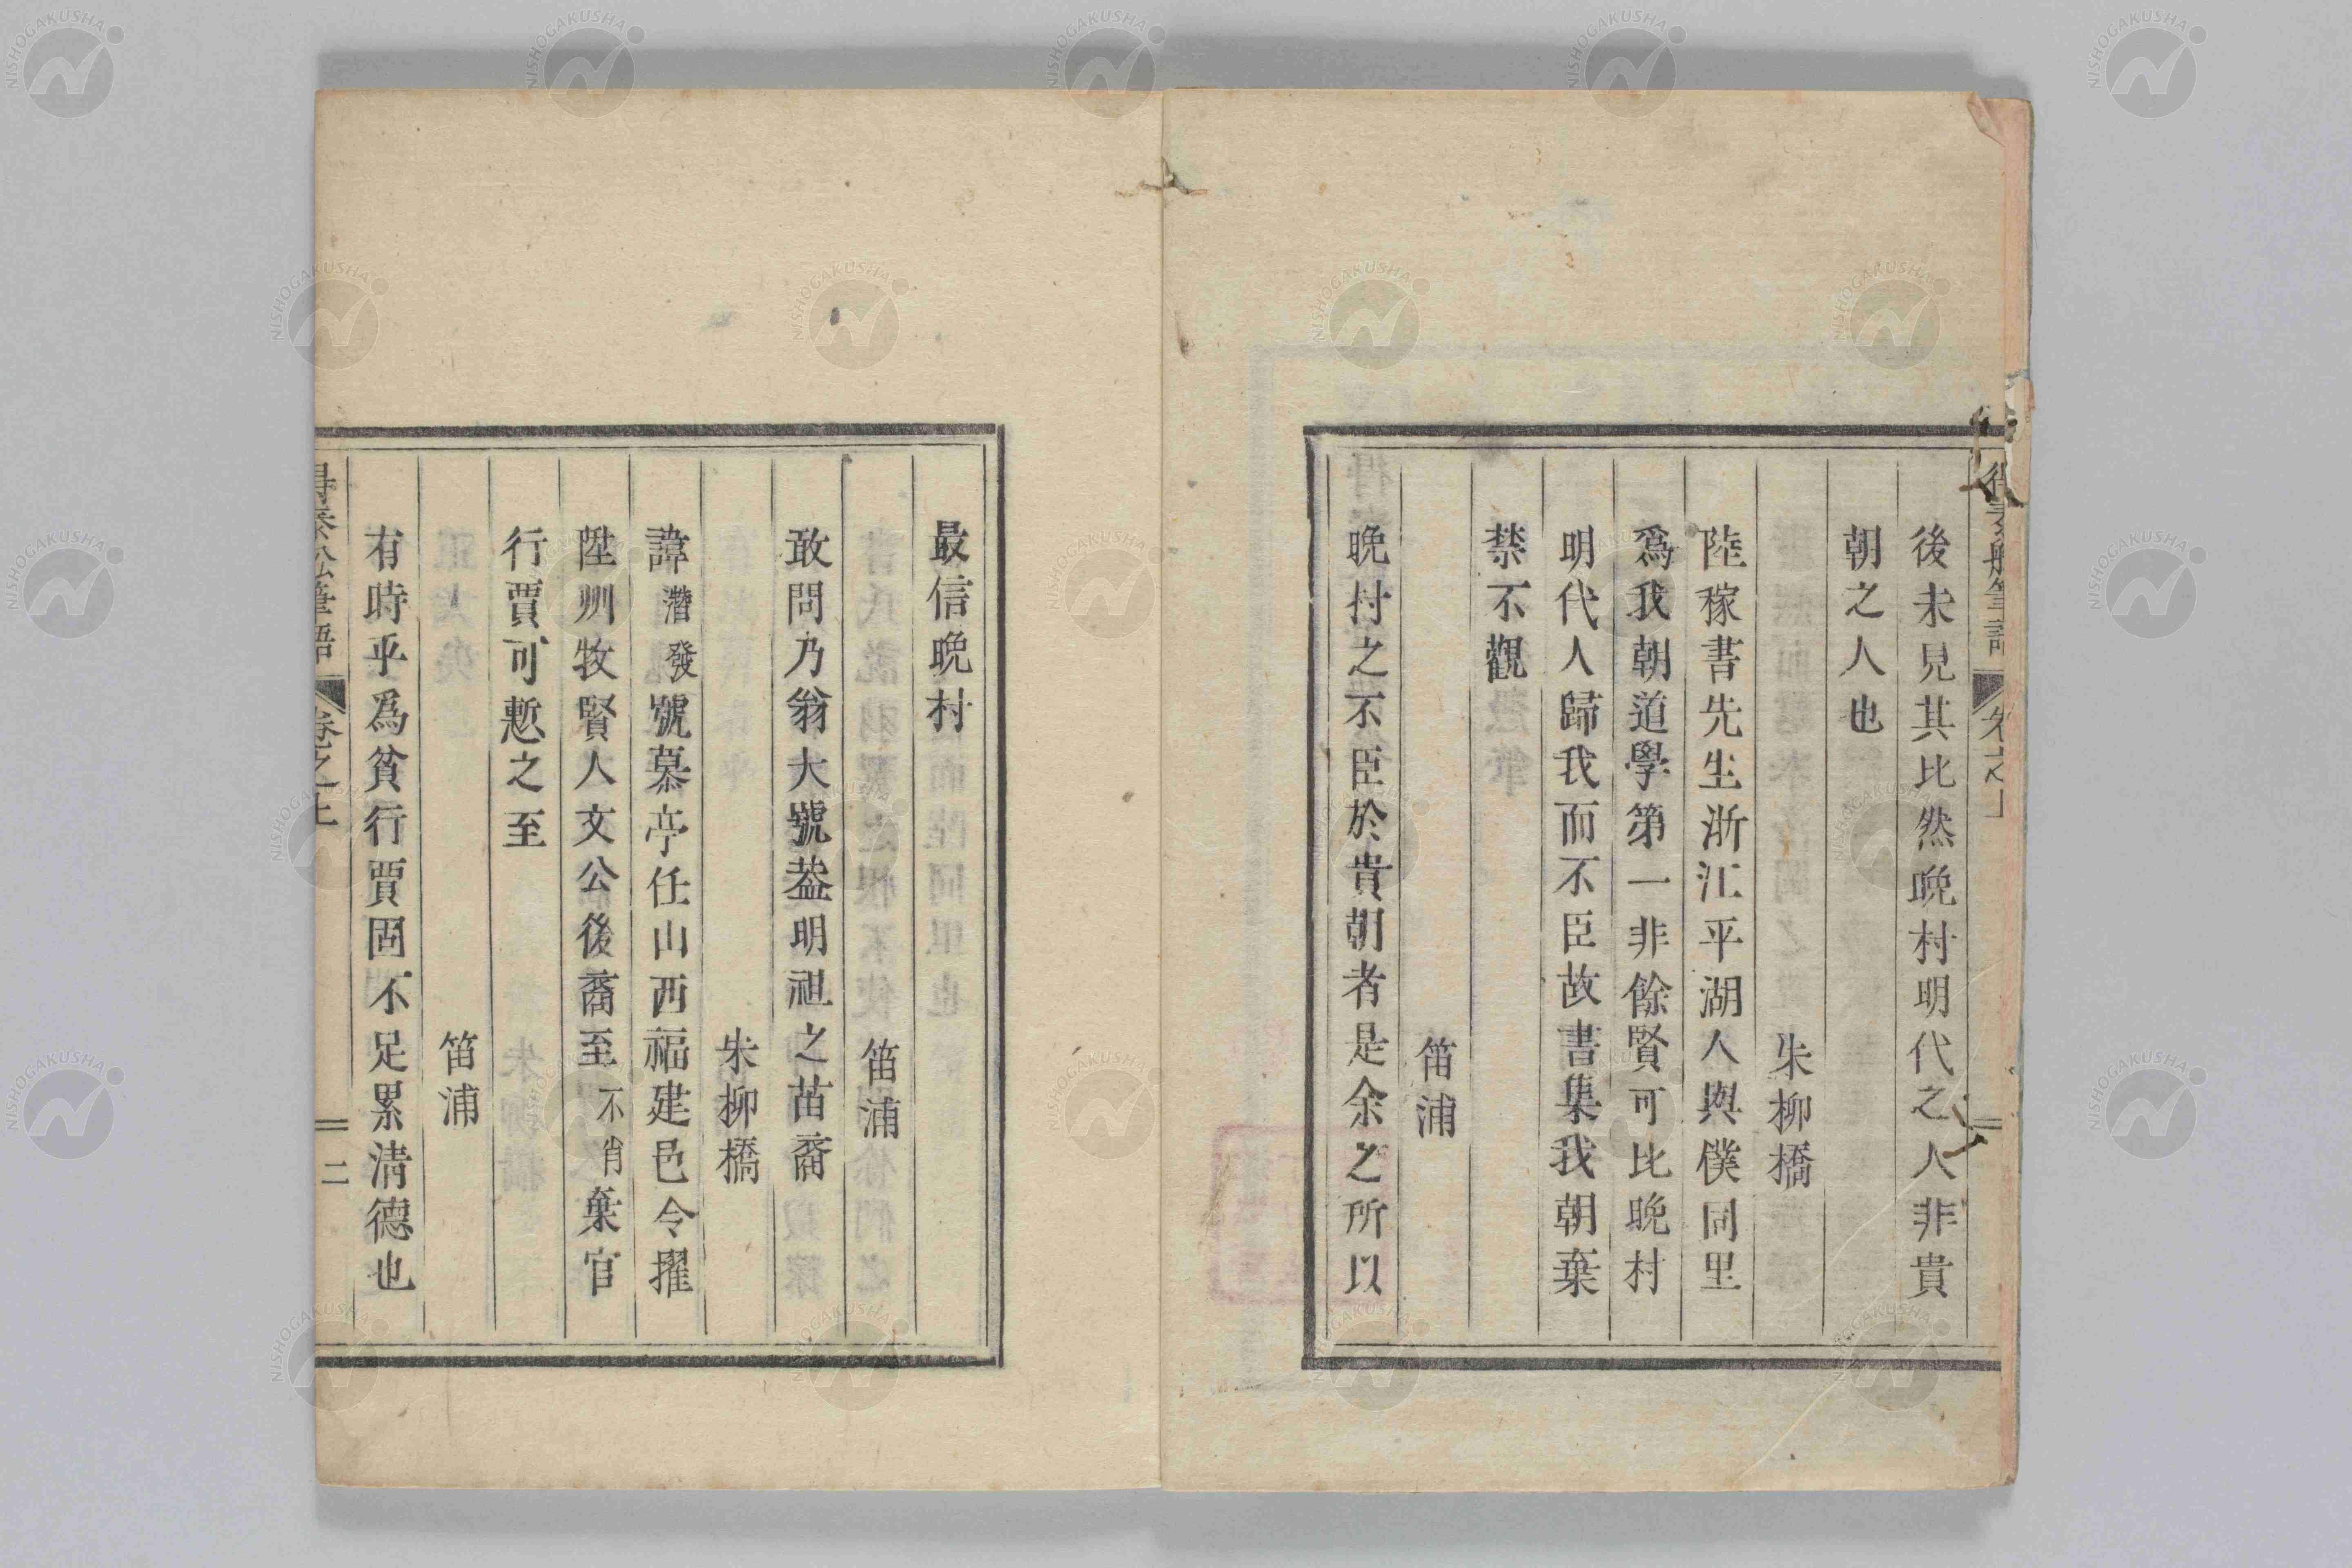 後未見其比然晩村明代之人非貴
朝之人也
朱柳橋
陸稼書先生浙江平湖人與僕同里
爲我朝道學第一非餘賢可比晩村
明代人歸我而不臣故書集我朝棄
禁不觀
笛浦
晩村之不臣於貴朝者是余之所以
最信晩村
笛浦
敢問乃翁大號葢明祖之苗裔
朱柳橋
諱濳發號慕亭任山西福建邑令擢
陞州牧賢人文公後裔至不肖棄官
行賈可慙之至
笛浦
有時乎爲貧行賈固不足累淸德也
得泰舩筆語 卷之上 二
NISHOGAKUSHA